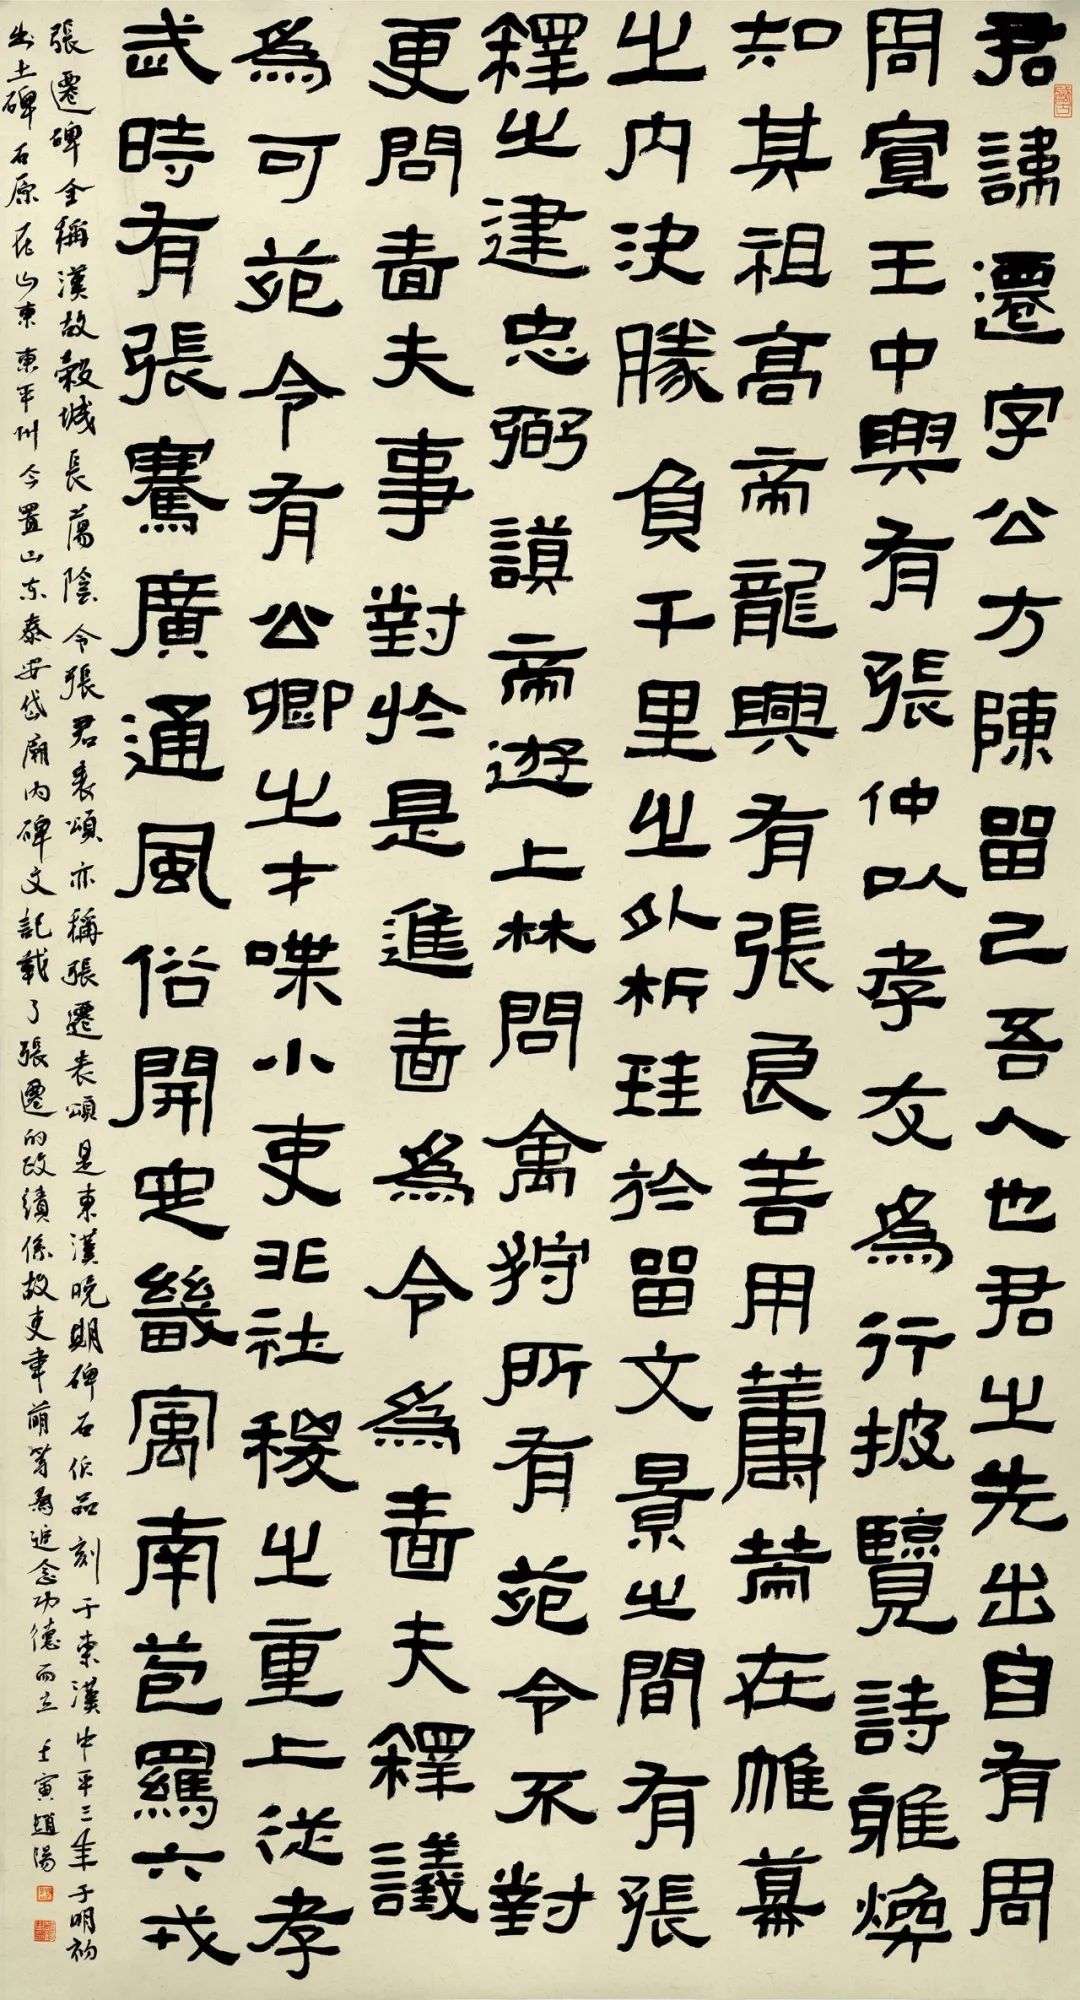 君諱遷字公方陳留己吾人也君之先出自有周
周宣王中興有張仲以孝友為行披覽詩雅煥
知其祖高帝龍興有張良善用籌策在帷幕
之內決勝負千里之外析珪於留文景之間有張
釋之建忠弼謨帝遊上林問禽狩所有苑令不對
更問嗇夫事對於是進嗇為令令為嗇夫釋議
為可苑令有公卿之才喋小吏非社稷之重上從孝
武時有張騫廣通風俗開定畿寓南苞羅六戎
張遷碑全稱漢故穀城長蕩陰令張君表頌亦稱張遷表頌是東漢晚期碑石作品刻于東漢中平三年于明初
出土碑石原在山東東平州今置山东泰安岱廟內碑文記載了張遷的政績係故吏韋萌等為追念功德而立壬寅趙陽